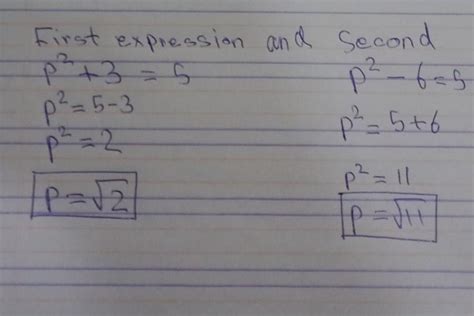 First expression and Second
p² + 3 = 5
p² = 5-3
p² = 2
p = √2
p² - 6 = 5
p² = 5+6
p² = 11
p = √11